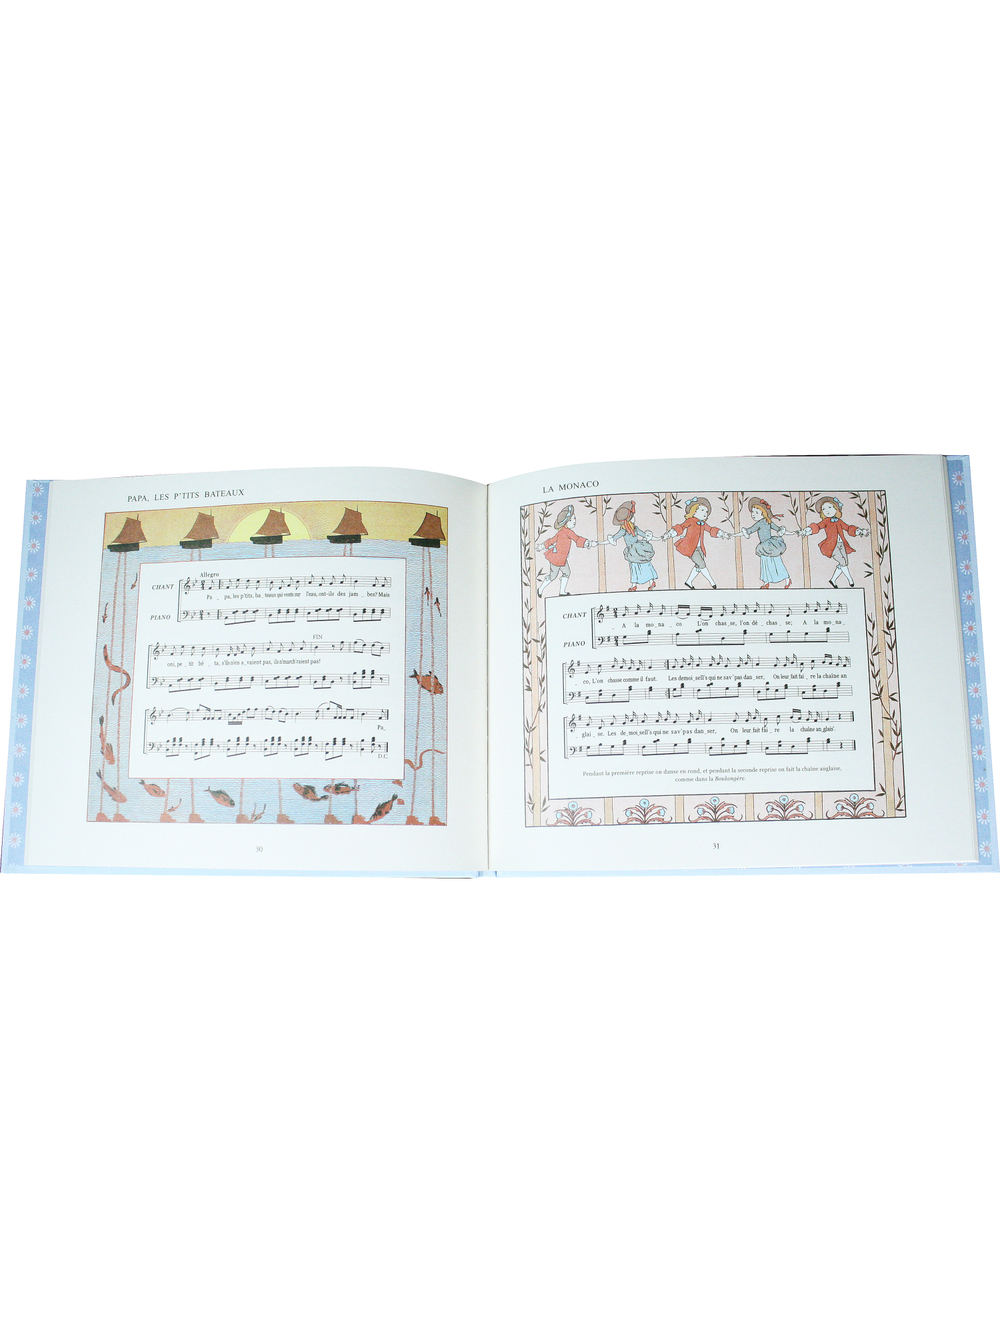 PAPA, LES P'TITS BATEAUX
Allegro
CHANT
Pa _ pa, les p'tits_ ba_ teaux qui vont sur l'eau, ont-ils des jam _ bes? Mais
PIANO
FIN
oui, pe _ tit bê _ ta, s'ils n'en a_vaient pas, ils n'march'raient pas!
Pa_
D.C.
30
LA MONACO
CHANT
_ A la mo_na _ co L'on chas_se, l'on dé_chas _ se; A la mo_na_
PIANO
_ co, L'on chasse comme il faut. Les demoi_sell's qui ne sav'pas dan_ser, On leur fait fai_re la chaîne an
_ glai_se. Les de_moi_sell's qui ne sav'pas dan_ser, On leur fait fai _ re la chaîne an_glais'.
Pendant la première reprise on danse en rond, et pendant la seconde reprise on fait la chaîne anglaise,
comme dans la Boulangère.
31